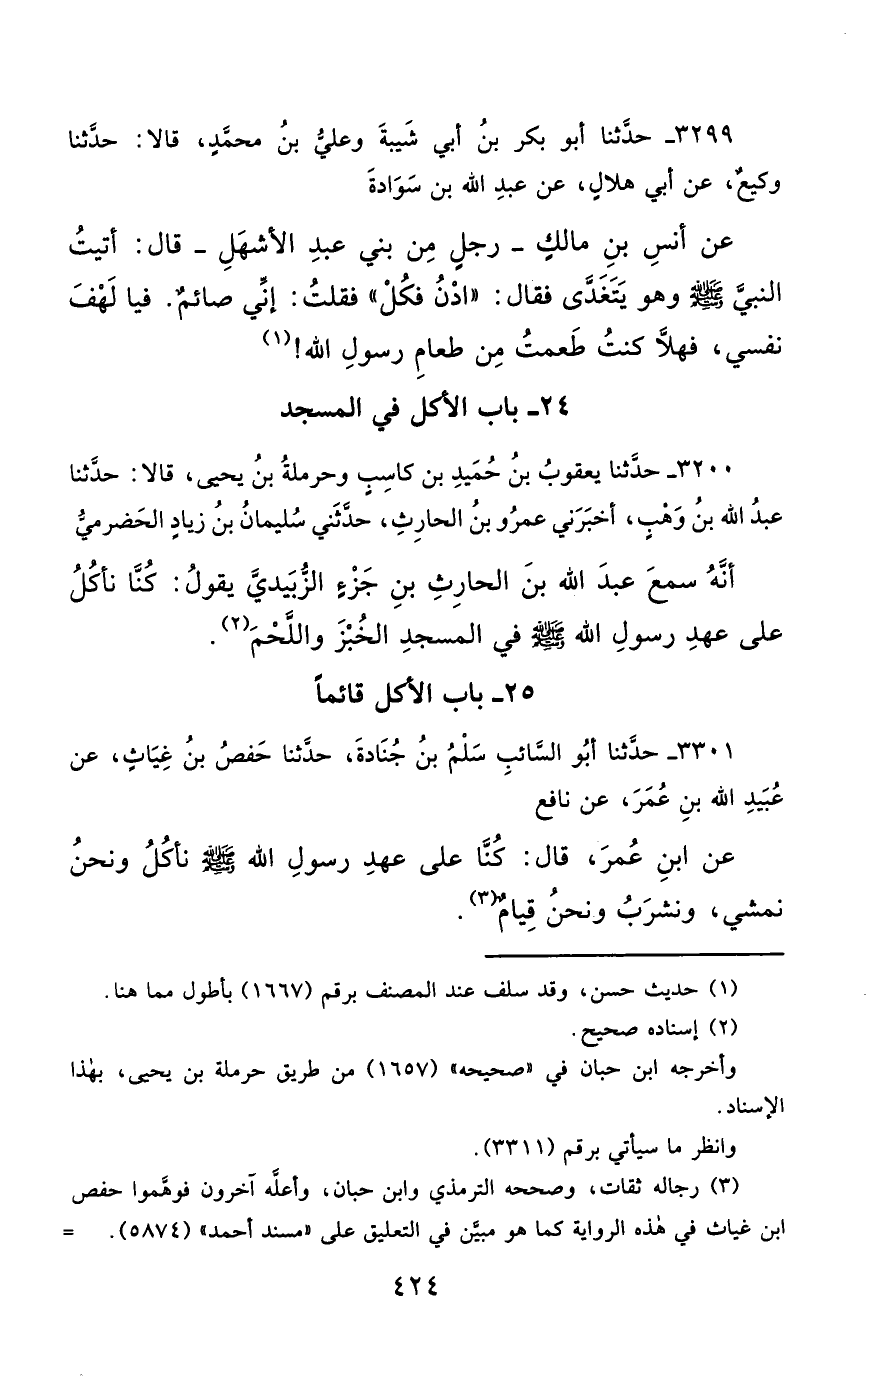 ٣٢٩٩ـ حدَّثنا أبو بكر بنُ أبي شَيبةَ وعليُّ بنُ محمَّدٍ، قالا: حدَّثنا
وكيعٌ، عن أبي هلالٍ، عن عبدِ الله بن سَوَادةَ
عن أنسِ بنِ مالكٍ ـ رجلٍ مِن بني عبدِ الأشهَلِ ـ قال: أتيتُ
النبيَّ ﷺ وهو يَتَغَدَّى فقال: «ادْنُ فكُلْ» فقلتُ: إنِّي صائمٌ. فيا لَهْفَ
نفسي، فهلاَّ كنتُ طَعمتُ مِن طعامِ رسولِ الله!(١)
٢٤ـ باب الأكل في المسجد
٣٢٠٠ـ حدَّثنا يعقوبُ بنُ حُمَيدِ بن كاسِبٍ وحرملةُ بنُ يحيى، قالا: حدَّثنا
عبدُ الله بنُ وَهْبٍ، أخبَرَني عمرُو بنُ الحارِثِ، حدَّثَني سُليمانُ بنُ زيادٍ الحَضرميُّ
أنَّهُ سمعَ عبدَ الله بنَ الحارِثِ بنِ جَزْءٍ الزُّبَيديَّ يقولُ: كُنَّا نأكُلُ
على عهدِ رسولِ الله ﷺ في المسجدِ الخُبْزَ واللَّحْمَ(٢).
٢٥ـ باب الأكل قائماً
٣٣٠١ـ حدَّثنا أبُو السَّائبِ سَلْمُ بنُ جُنَادةَ، حدَّثنا حَفصُ بنُ غِيَاثٍ، عن
عُبَيدِ الله بنِ عُمَرَ، عن نافع
عن ابنِ عُمرَ، قال: كُنَّا على عهدِ رسولِ الله ﷺ نأكُلُ ونحنُ
نمشي، ونشرَبُ ونحنُ قِيامٌ(٣).
(١) حديث حسن، وقد سلف عند المصنف برقم (١٦٦٧) بأطول مما هنا.
(٢) إسناده صحيح.
وأخرجه ابن حبان في «صحيحه» (١٦٥٧) من طريق حرملة بن يحيى، بهٰذا
الإسناد.
وانظر ما سيأتي برقم (٣٣١١).
(٣) رجاله ثقات، وصححه الترمذي وابن حبان، وأعلَّه آخرون فوهَّموا حفص
ابن غياث في هٰذه الرواية كما هو مبيَّن في التعليق على «مسند أحمد» (٥٨٧٤). =
٤٢٤